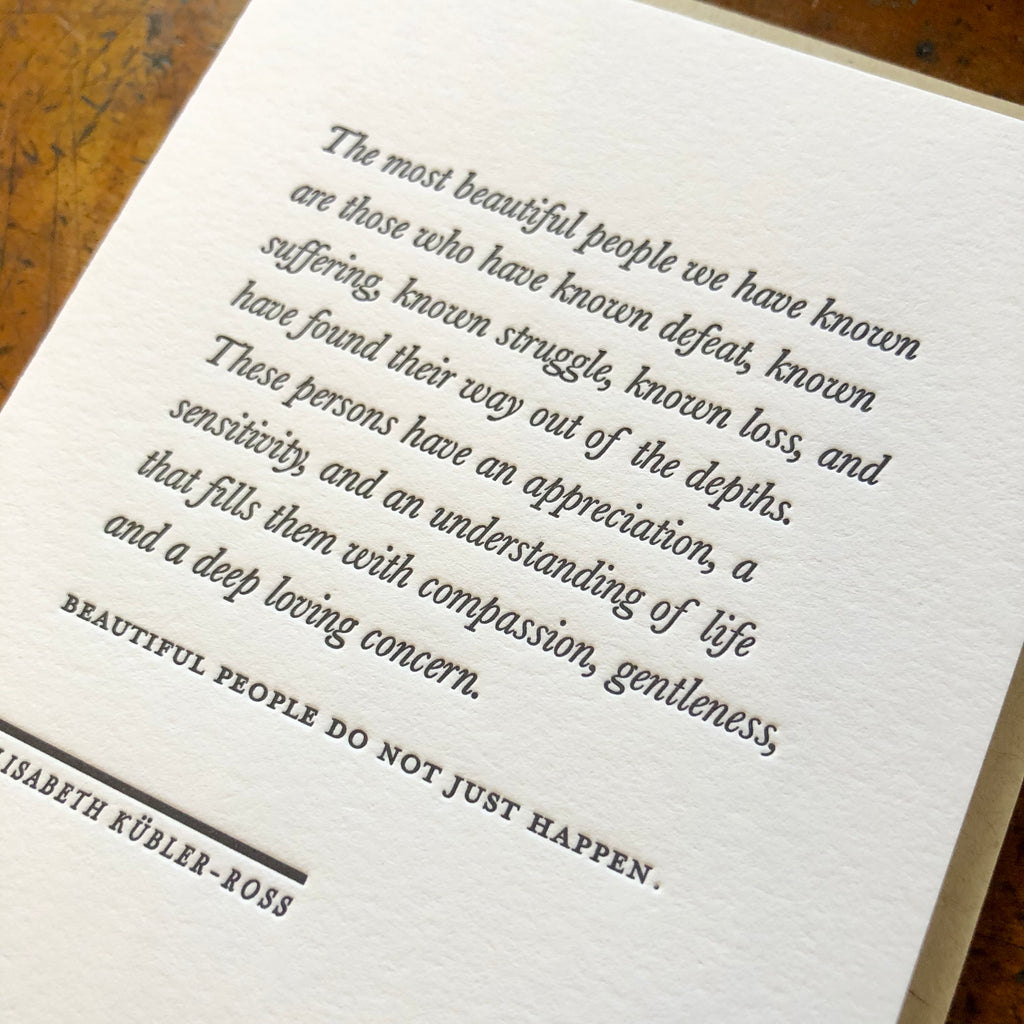 The most beautiful people we have known
are those who have known defeat, known
suffering, known struggle, known loss, and
have found their way out of the depths.
These persons have an appreciation, a
sensitivity, and an understanding of life
that fills them with compassion, gentleness,
and a deep loving concern.
BEAUTIFUL PEOPLE DO NOT JUST HAPPEN.
LISABETH KÜBLER-ROSS